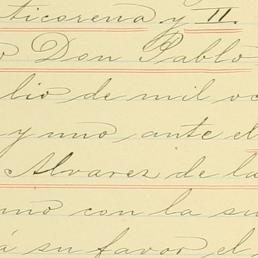 ticorena y II.
o Don Pablo
lio de mil oc
y uno, ante el
Alvarez de la
uno con la su
á su favor el